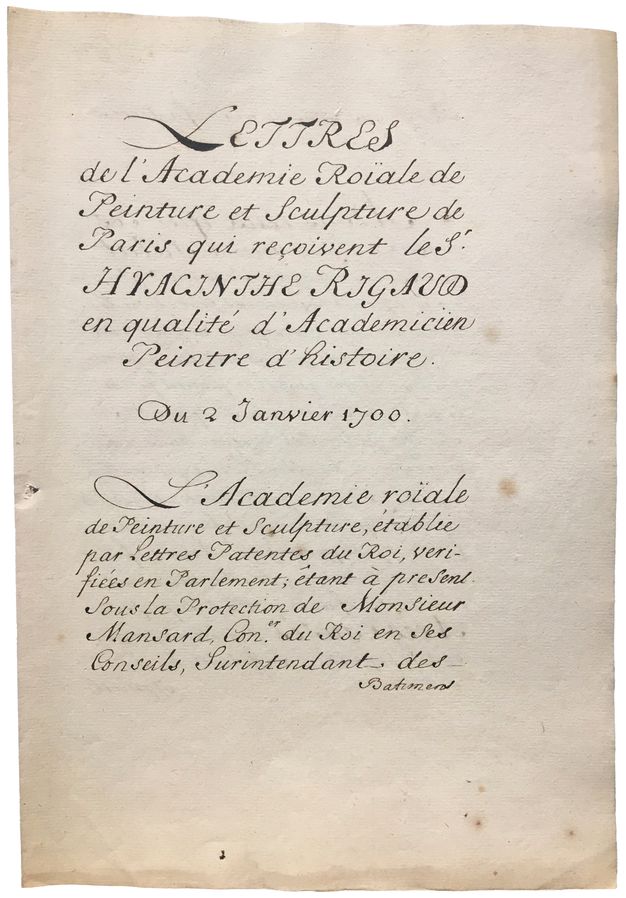 LETTRES
de l'Academie Roïale de
Peinture et Sculpture de
Paris qui reçoivent le Sr.
HYACINTHE RIGAUD
en qualité d'Academicien
Peintre d'histoire.
Du 2 Janvier 1700.
L'Academie roïale
de Peinture et Sculpture, établie
par Lettres Patentes du Roi, veri-
fiées en Parlement; êtant à present
Sous la Protection de Monsieur
Mansard, Con.er du Roi en Ses
Conseils, Surintendant des
Batimens